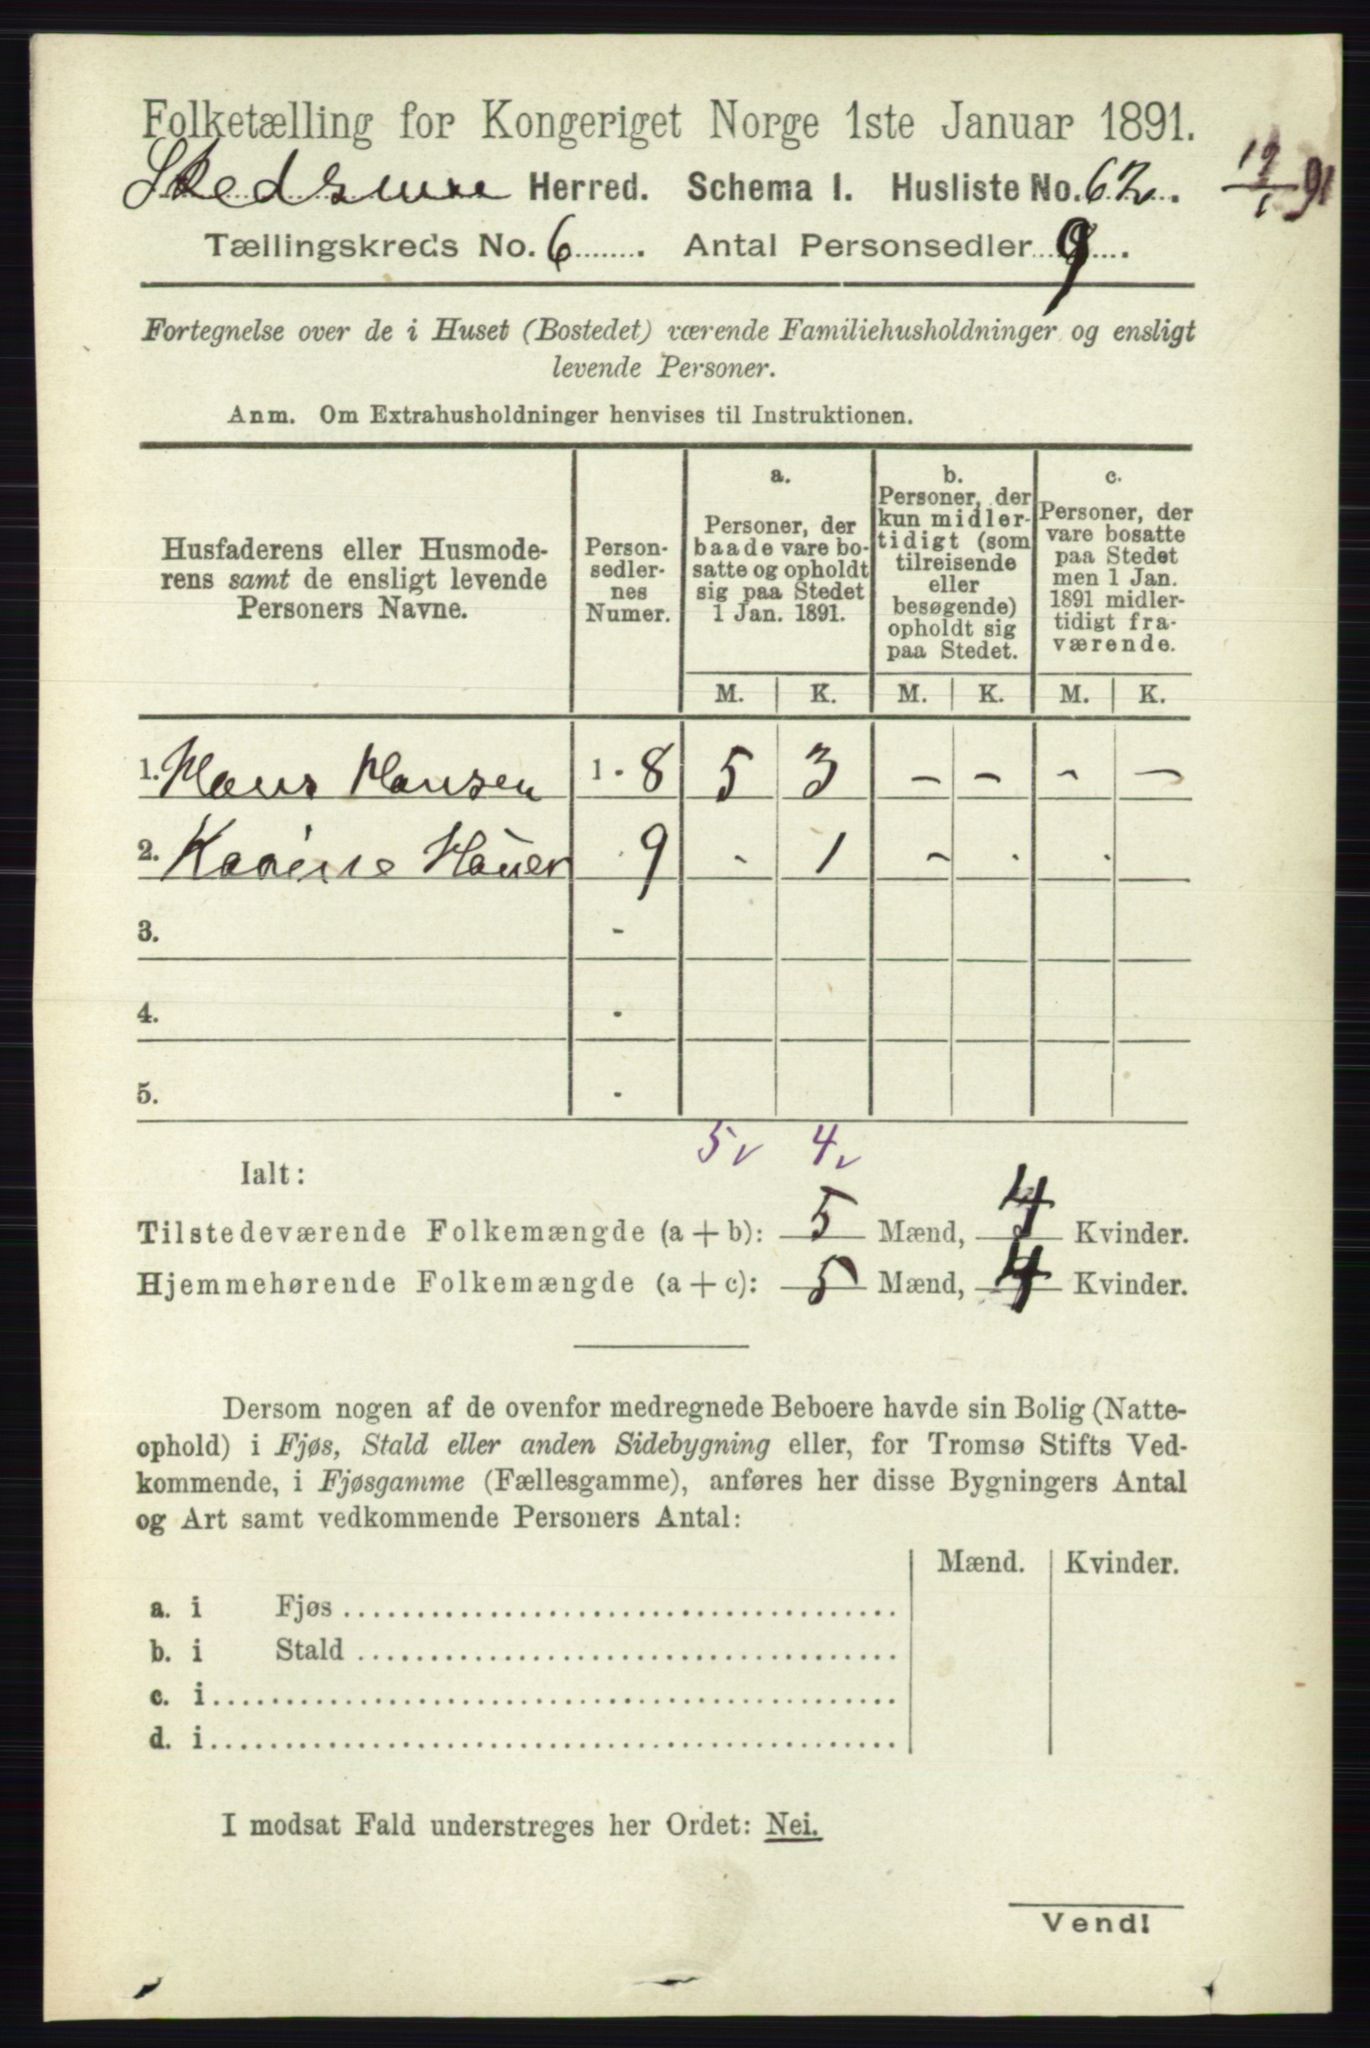 Folketælling for Kongeriget Norge 1ste Januar 1891.
Skedsmo Herred. Schema I. Husliste No. 62.
12/1 91
Tællingskreds No. 6. Antal Personsedler 9.
Fortegnelse over de i Huset (Bostedet) værende Familiehusholdninger og ensligt
levende Personer.
Anm. Om Extrahusholdninger henvises til Instruktionen.
Husfaderens eller Husmode-
rens samt de ensligt levende
Personers Navne.
Person-
sedler-
nes
Numer.
a.
Personer, der
baade vare bo-
satte og opholdt
sig paa Stedet
1 Jan. 1891.
b.
Personer, der
kun midler-
tidigt (som
tilreisende
eller
besøgende)
opholdt sig
paa Stedet.
c.
Personer, der
vare bosatte
paa Stedet
men 1 Jan.
1891 midler-
tidigt fra-
værende.
M. K. M. K. M. K.
1. Hans Hansen 1 - 8 5 3 - - - -
2. - 9 - 1 - . .
3. -
4. -
5. -
5 v 4 v
Ialt:
Tilstedeværende Folkemængde (a + b): 5 Mænd, 4 Kvinder.
Hjemmehørende Folkemængde (a + c): 5 Mænd, 4 Kvinder.
Dersom nogen af de ovenfor medregnede Beboere havde sin Bolig (Natte-
ophold) i Fjøs, Stald eller anden Sidebygning eller, for Tromsø Stifts Ved-
kommende, i Fjøsgamme (Fællesgamme), anføres her disse Bygningers Antal
og Art samt vedkommende Personers Antal:
Mænd. Kvinder.
a. i Fjøs
b. i Stald
c. i
d. i
I modsat Fald understreges her Ordet: Nei.
Vend!